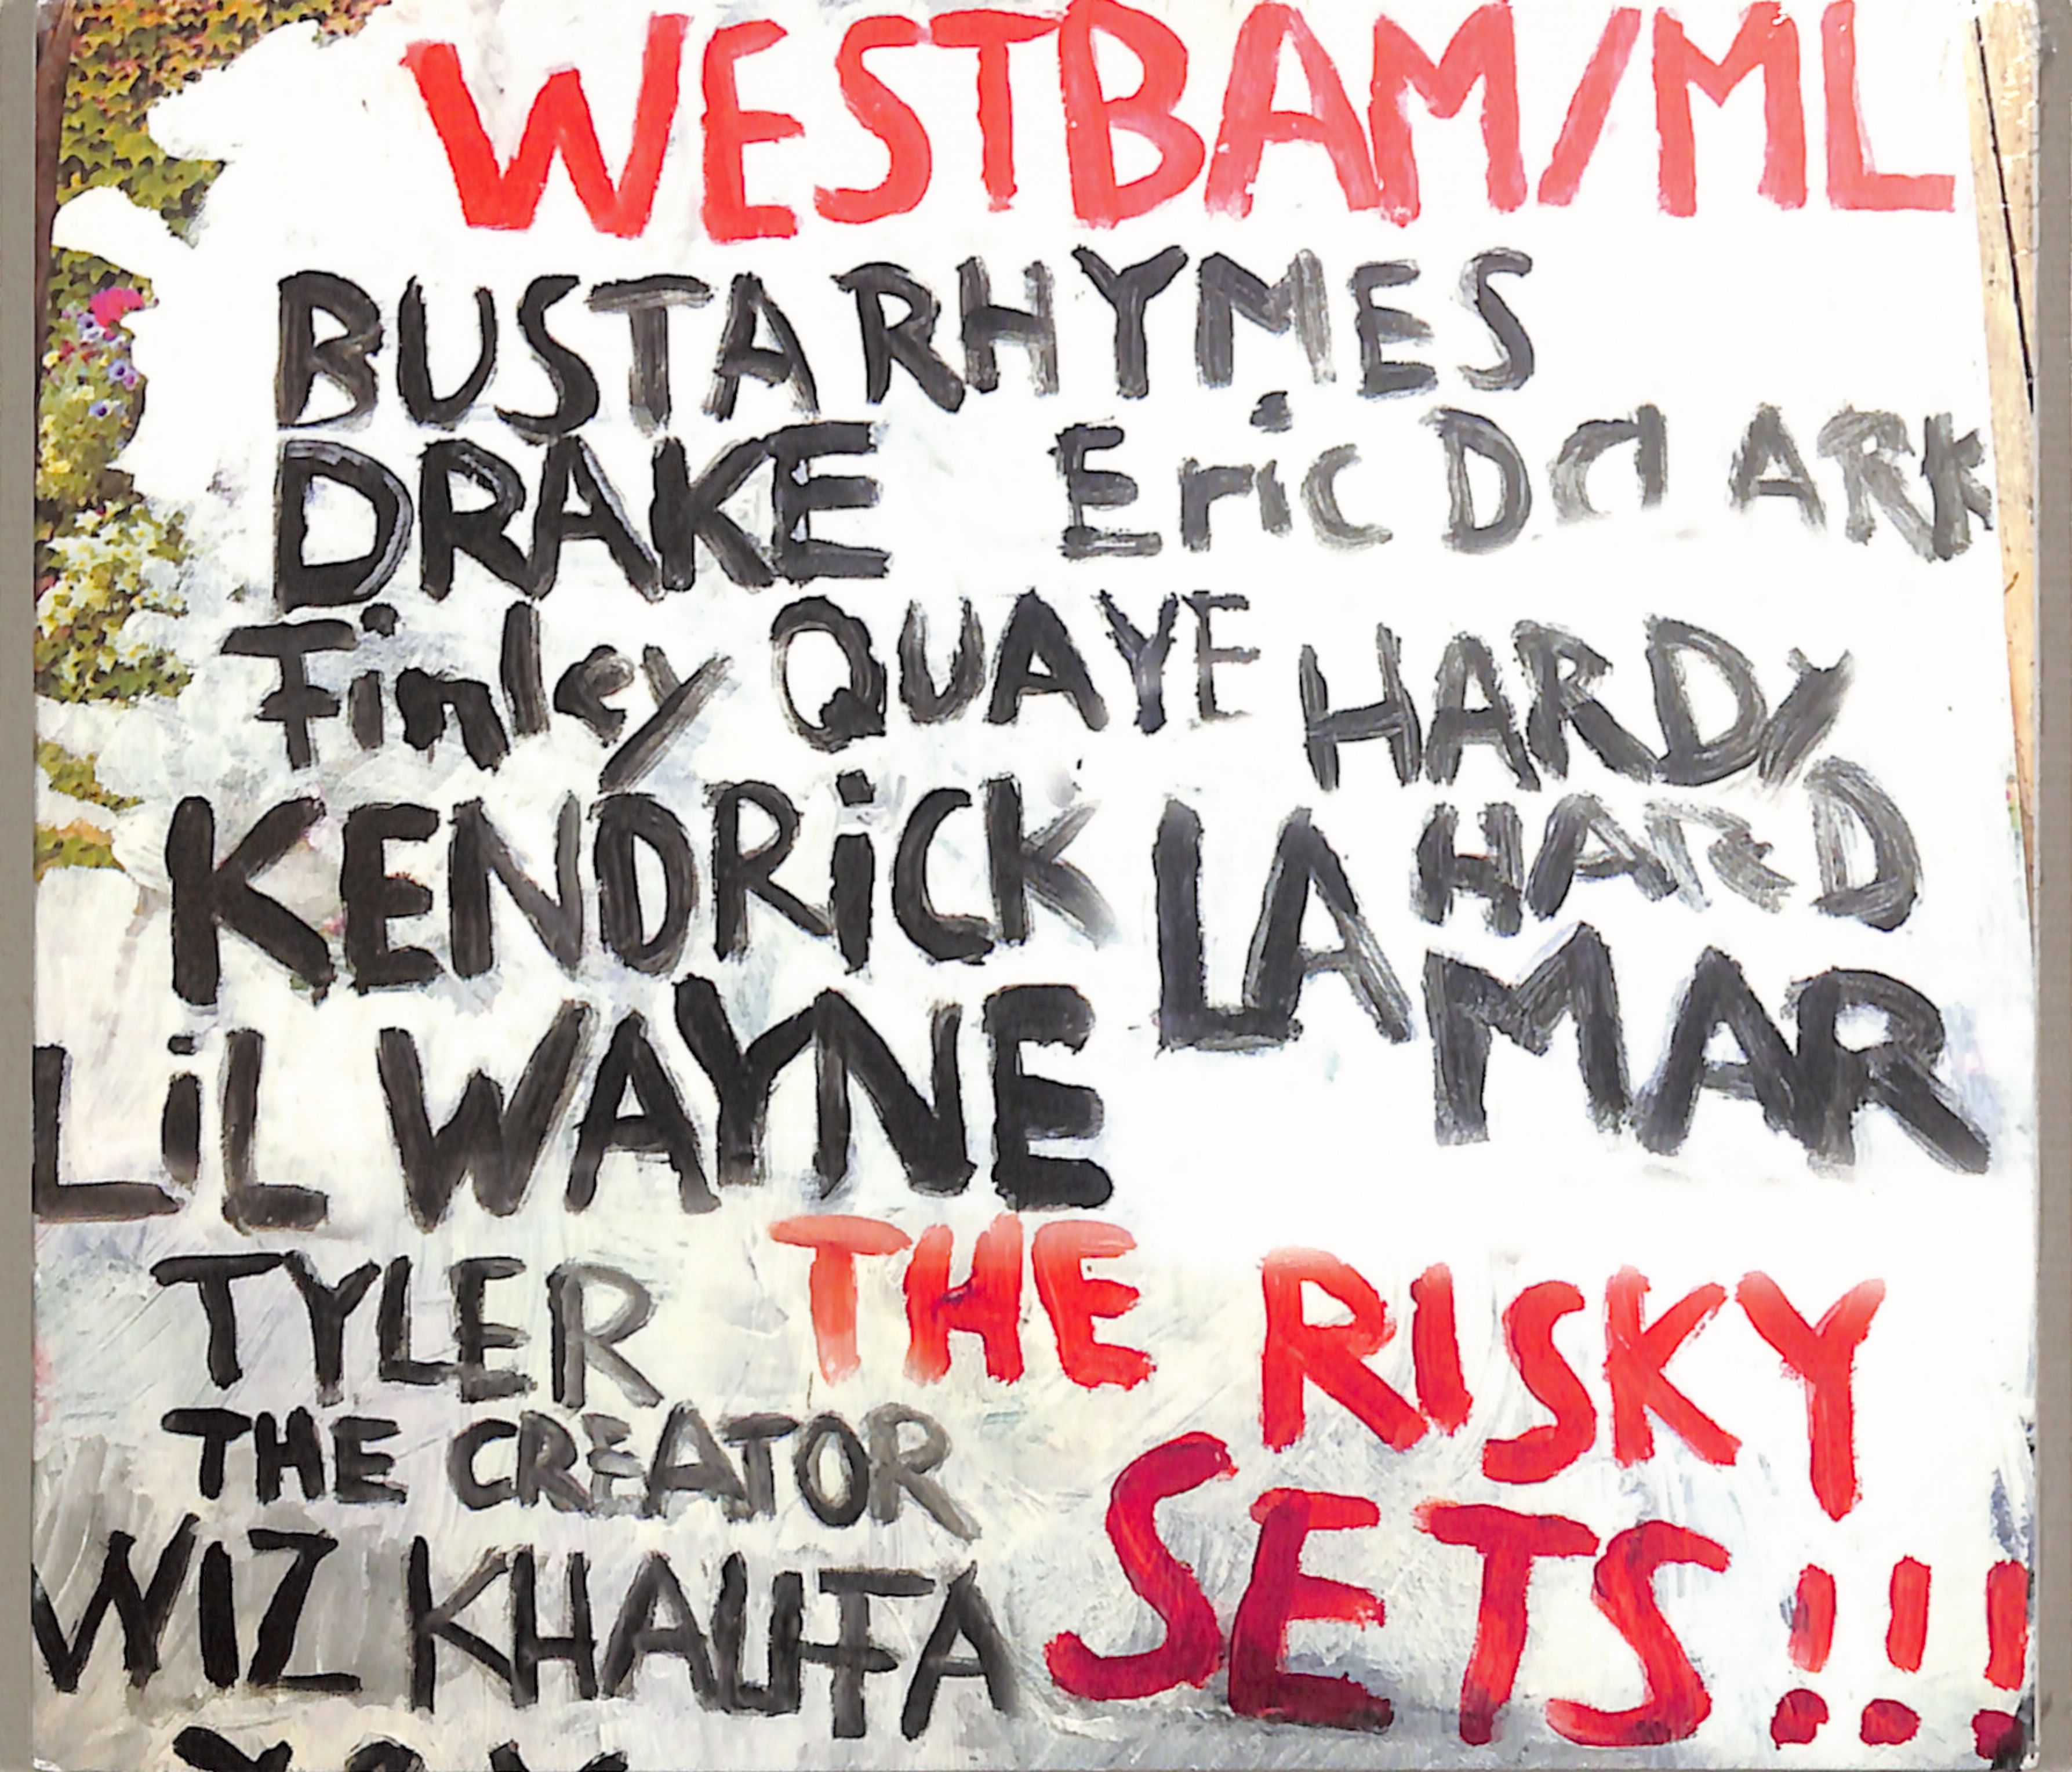 WESTBAM/ML
BUSTA RHYMES
DRAKE Eric D ClARK
Finley QUAYE HARDY
HARD
KENDRiCK LAMAR
LiL WAYNE
TYLER THE CREATOR
THE RISKY SETS!!!
WIZ KHALIFA